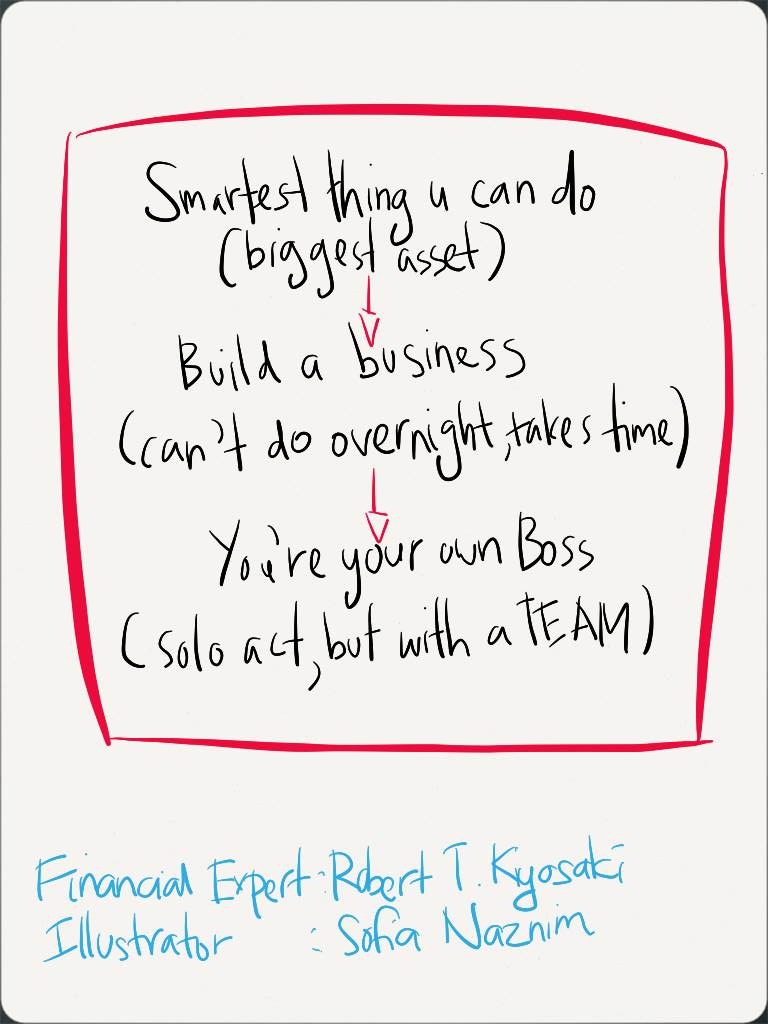 Smartest thing u can do
(biggest asset)
Build a business
(can't do overnight, takes time)
You're your own Boss
(solo act, but with a TEAM)
Financial Expert : Robert T. Kyosaki
Illustrator : Sofia Naznim